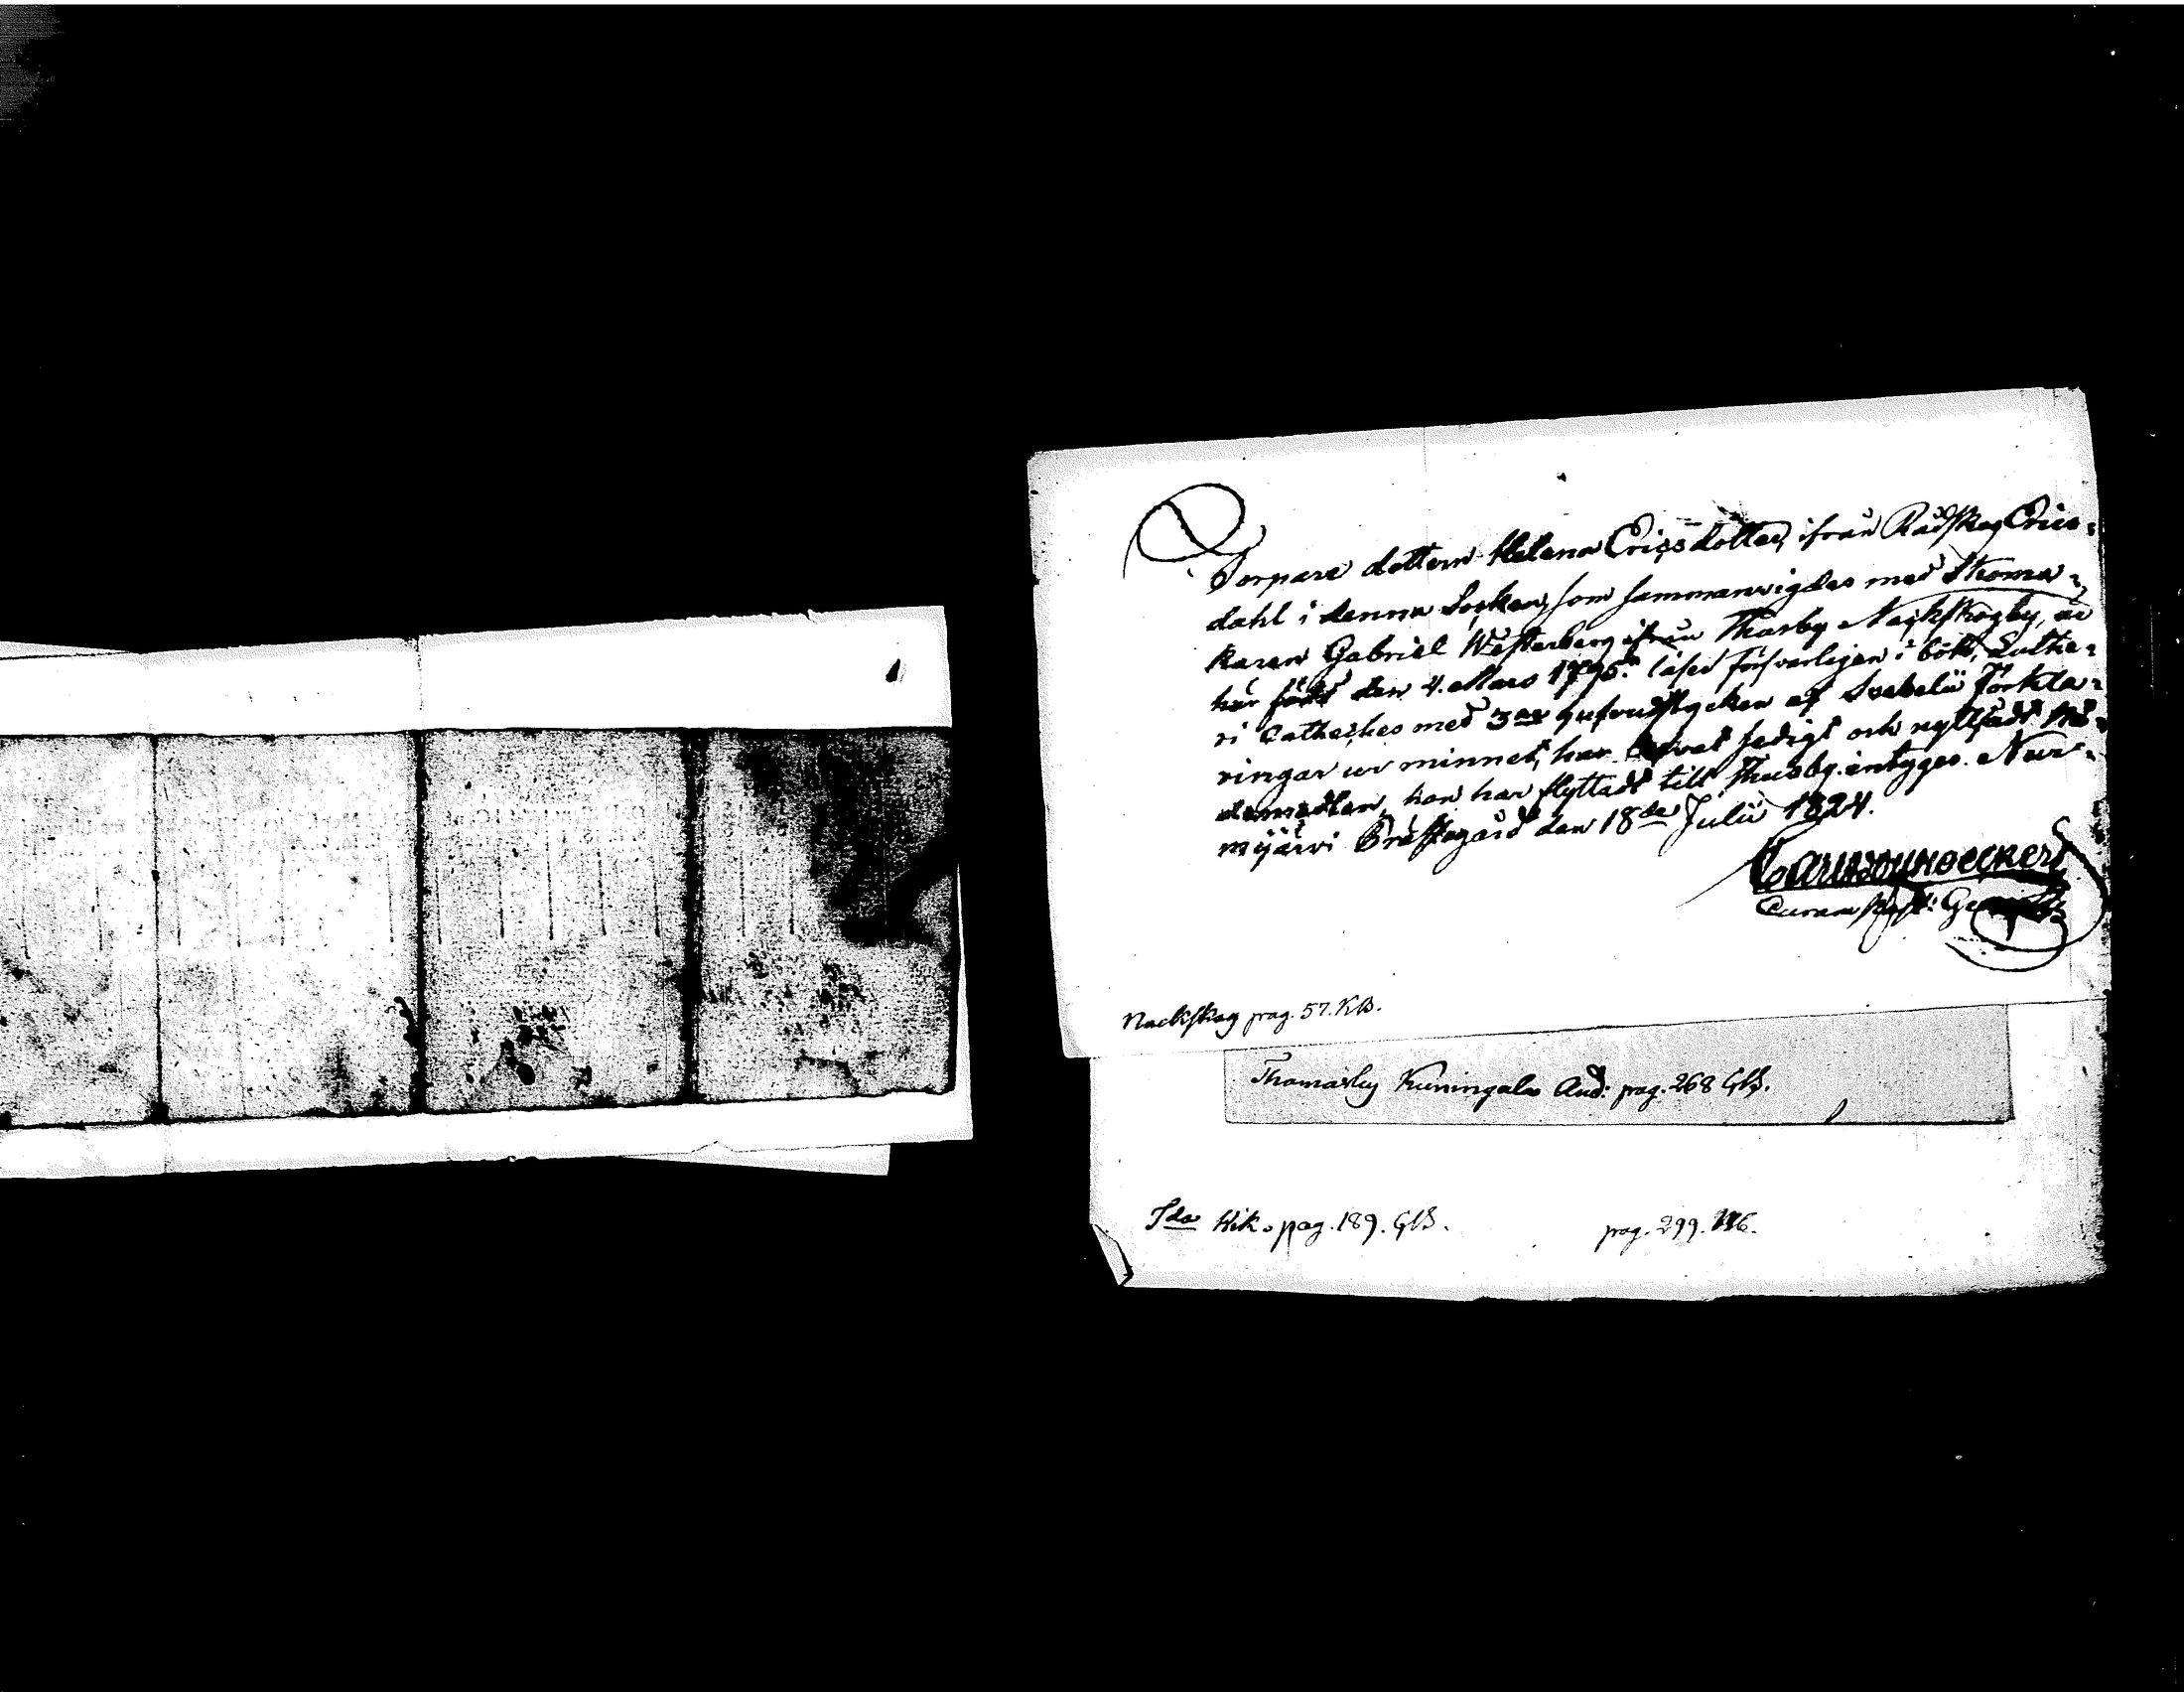 Torpare dottern Helena Ericsdotter, ifrån Rådskog Erics-
dahl i denna Socken, som sammanvigdes med Skoma-
karen Gabriel Westerberg ifrån Thusby Nackskogby, är
här född den 4. Mars 1796. läser försvarligen i bok, Luthe-
ri Catheches med 3ne hufvudstycken af Svebelii förkla-
ringar ur minnet, har lefvat sedigt och nyttjadt Nå-
demedlen, hon har flyttadt till Thusby. intygas. Nur-
mijärvi Prästegård den 18de Julii 1824.
Curam past: Ger
Nackskog pag. 57. KB.
Thomasby Kuningala And: pag. 268 GB.
Ida Kik. pag. 189. GB. pag. 299.